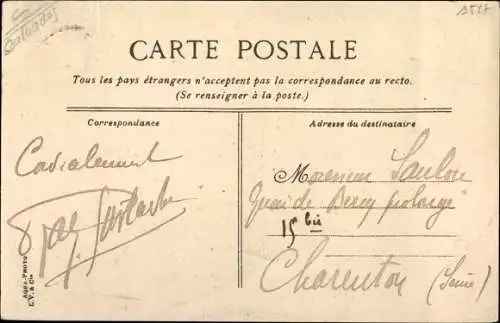 Calvados
CARTE POSTALE
Tous les pays étrangers n'acceptent pas la correspondance au recto.
(Se renseigner à la poste.)
Correspondance
Cordialement
Adresse du destinataire
Monsieur
Quai de Bercy prolongé
15 bis
Charenton (Seine)
AQUA-PHOTO
L.V. & Cie